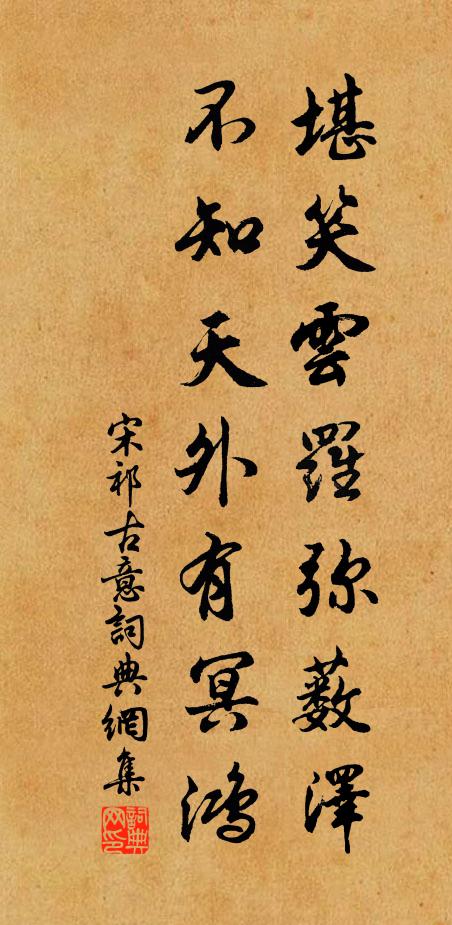 堪笑雲羅弥薮澤
不知天外有冥鴻
宋祁古意詞典網集
詞典网印